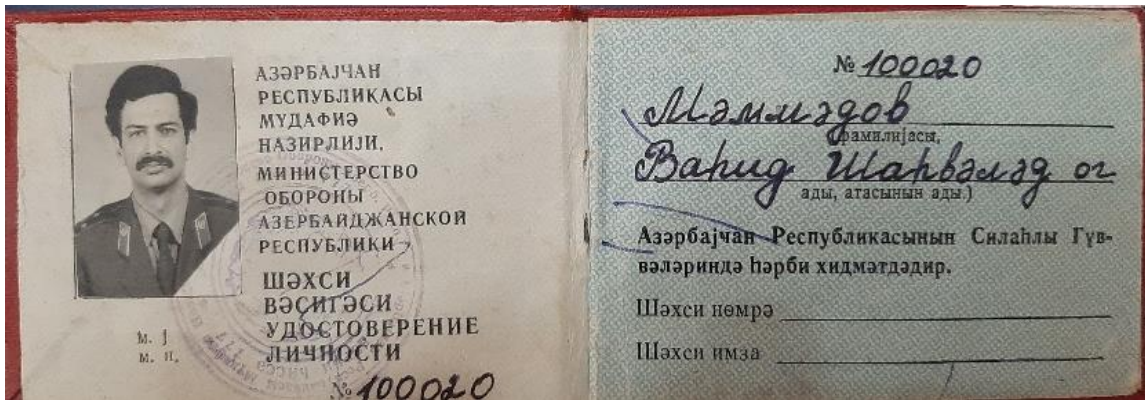 АЗӘРБАЈҸАН
РЕСПУБЛИКАСЫ
МҮДАФИӘ
НАЗИРЛИЈИ,
МИНИСТЕРСТВО
ОБОРОНЫ
АЗЕРБАЙДЖАНСКОЙ
РЕСПУБЛИКИ
ШӘХСИ
ВӘСИГӘСИ
УДОСТОВЕРЕНИЕ
ЛИЧНОСТИ
№ 100020
м. ј
м. п.
№ 100020
Мәммәдов
фамилијасы,
Ваһид Шаһвәләд ог
ады, атасынын ады.)
Азәрбајҹан Республикасынын Силаһлы Гүв-
вәләриндә һәрби хидмәтдәдир.
Шәхси нөмрә
Шәхси имза